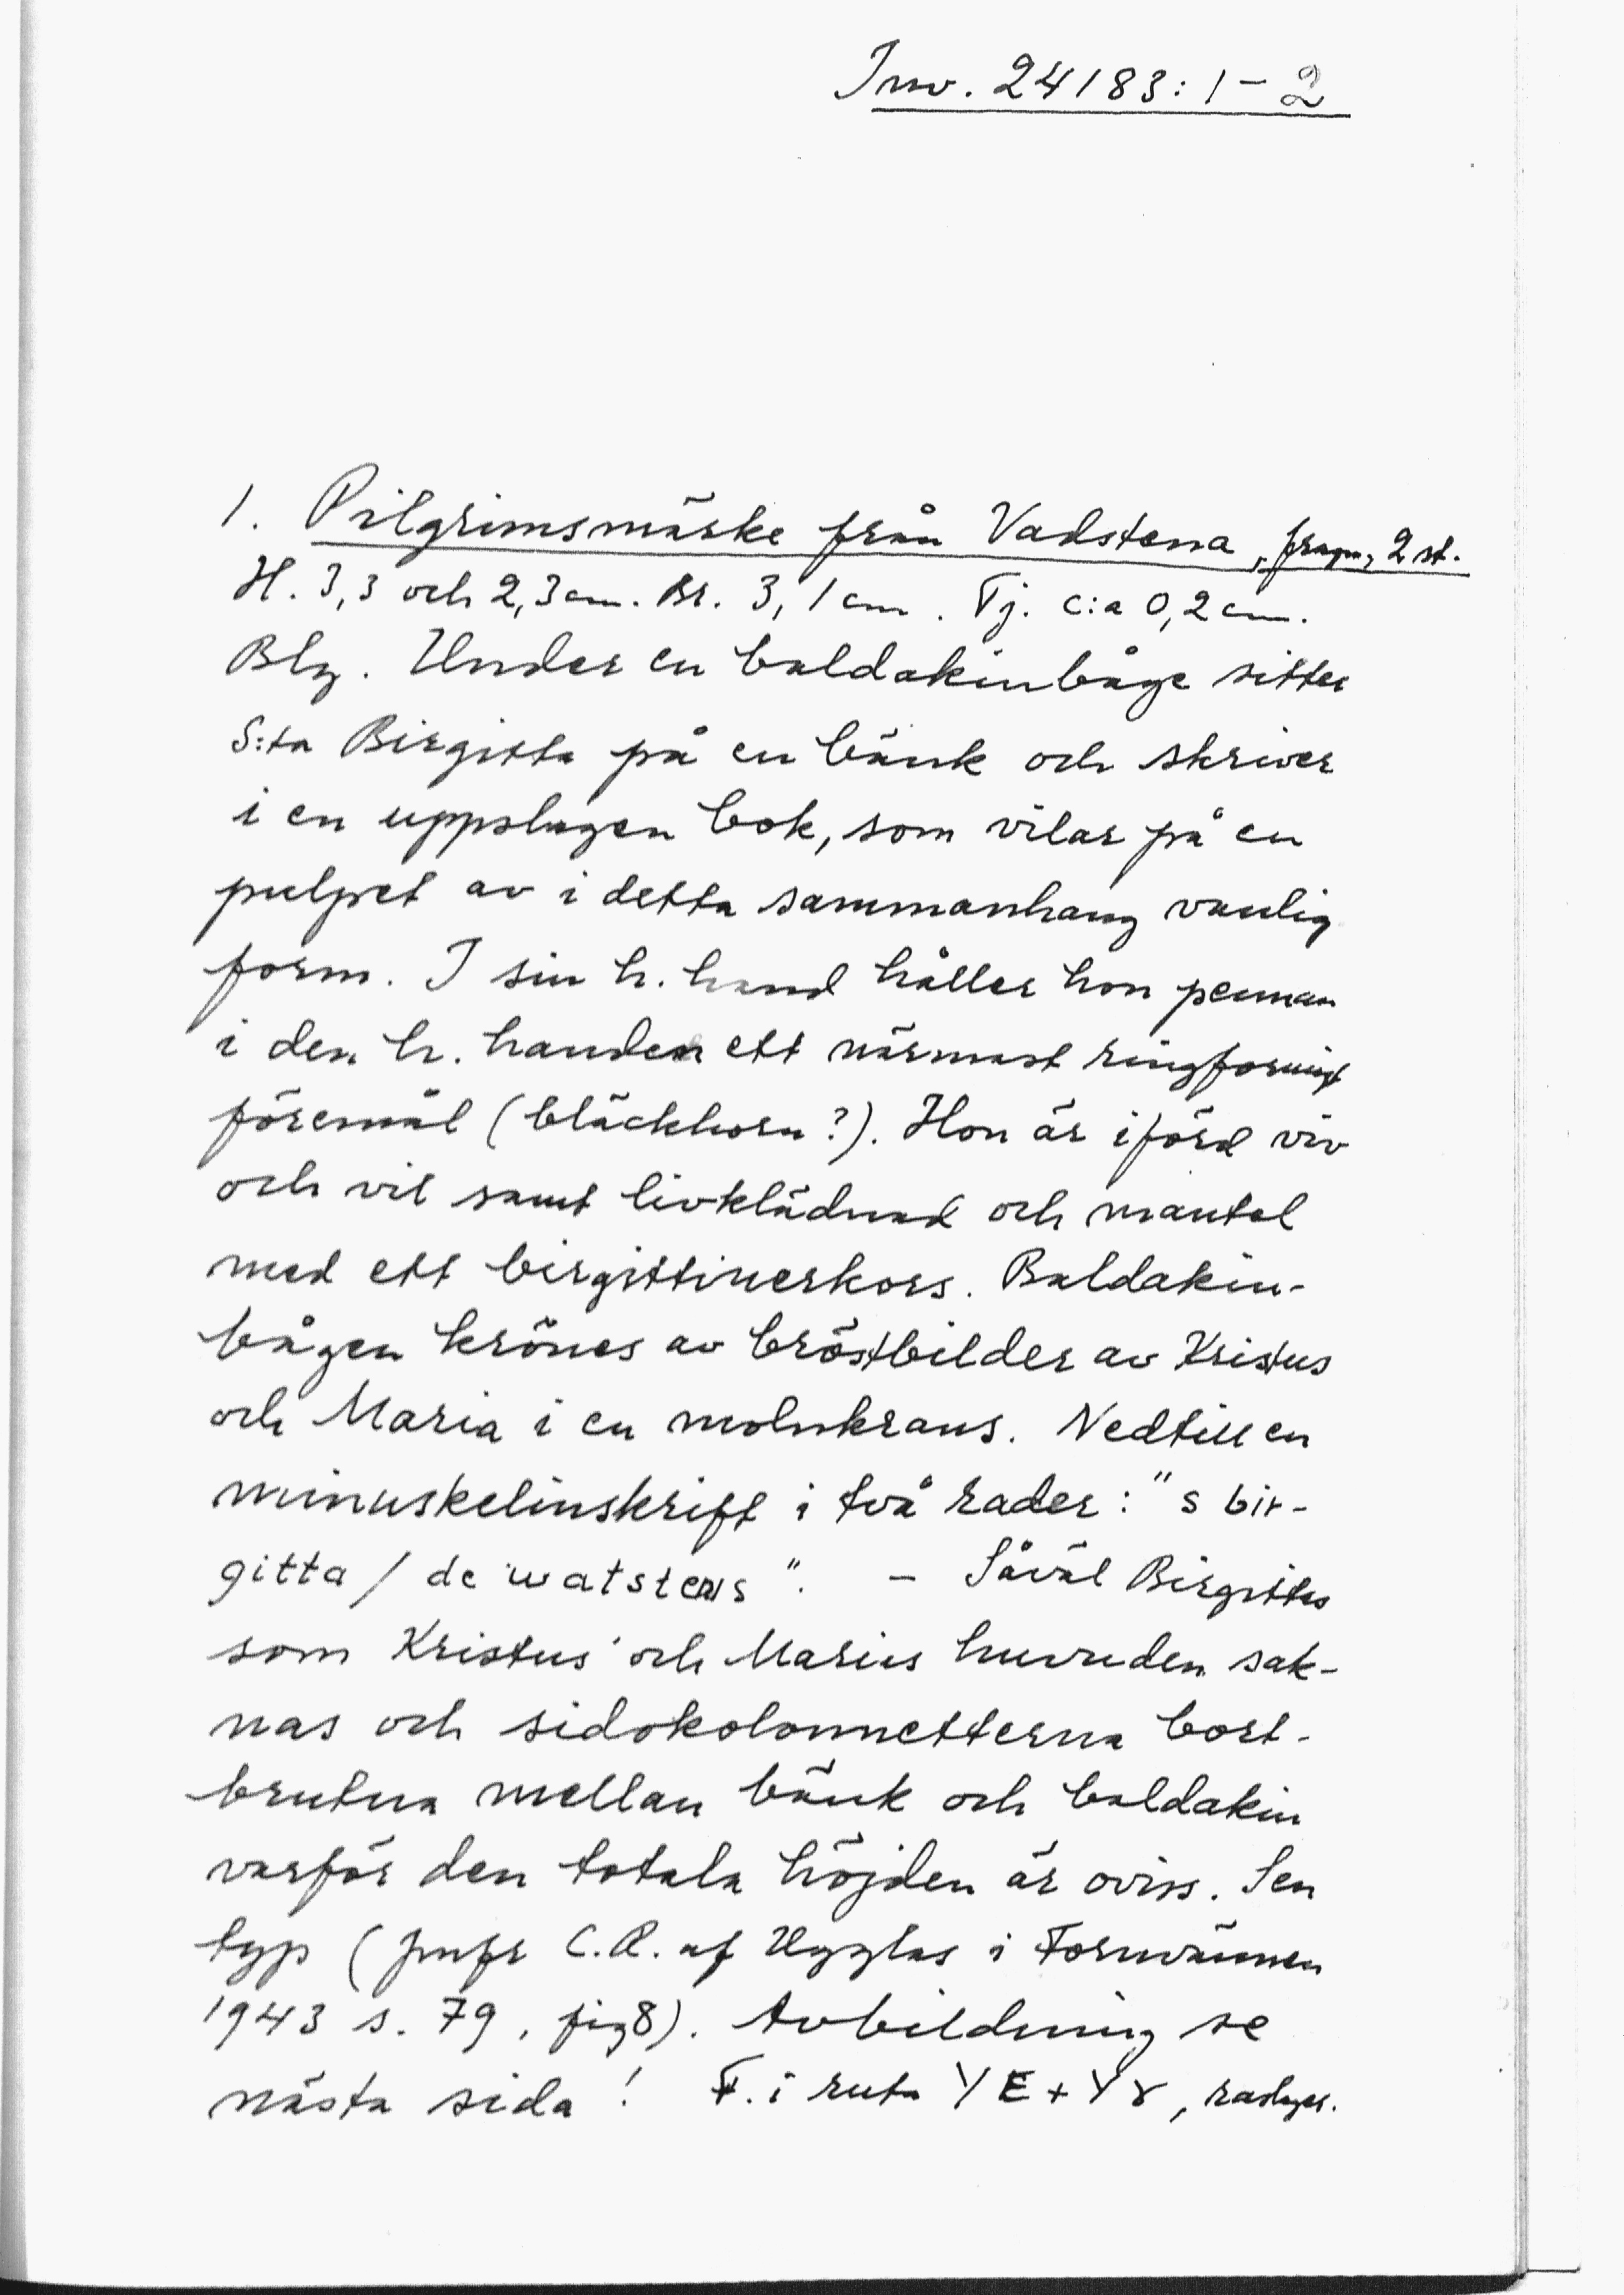 Inv. 24183:1-2
1. Pilgrimsmärke från Vadstena, fragm, 2 st.
H. 3,3 och 2,3 cm. Br. 3,1 cm. Tj. c:a 0,2 cm.
Bly. Under en baldakinbåge sitter
S:ta Birgitta på en bänk och skriver
i en uppslagen bok, som vilar på en
pulpet av i detta sammanhang vanlig
form. I sin h. hand håller hon pennan
i den h. handen ett närmast ringformigt
föremål (bläckhorn?). Hon är iförd viv
och vil samt livklädnad och mantel
med ett birgittinerkors. Baldakin-
bågen krönes av bröstbilder av Kristus
och Maria i en molnkrans. Nedtill en
minuskelinskrift i två rader: "s bir-
gitta / de watstens". - Såväl Birgittas
som Kristus' och Marias huvuden sak-
nas och sidokolonnetterna bort-
brutna mellan bänk och baldakin
varför den totala höjden är oviss. Sen
typ (jmfr C.R. af Ugglas i Fornvännen
1943 s. 79, fig 8). Avbildning se
nästa sida! F. i ruta YE+YX,